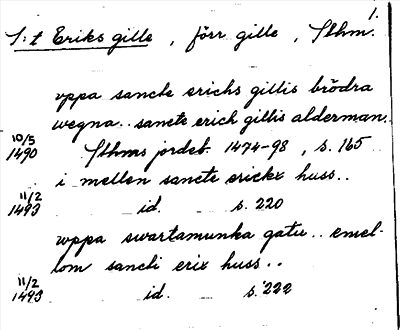 1.
S:t Eriks gille, förr gille, Sthm.
vppa sancte erichs gillis brödra
wegna.. sancte erich gillis alderman.
10/5
1490 Sthms jordeb. 1474-98, s. 165
i mellen sancte erickx huss..
11/2
1493 id. s. 220
vppa swartamunka gatu.. emel-
lom sancti erix huss..
11/2
1493 id. s. 222